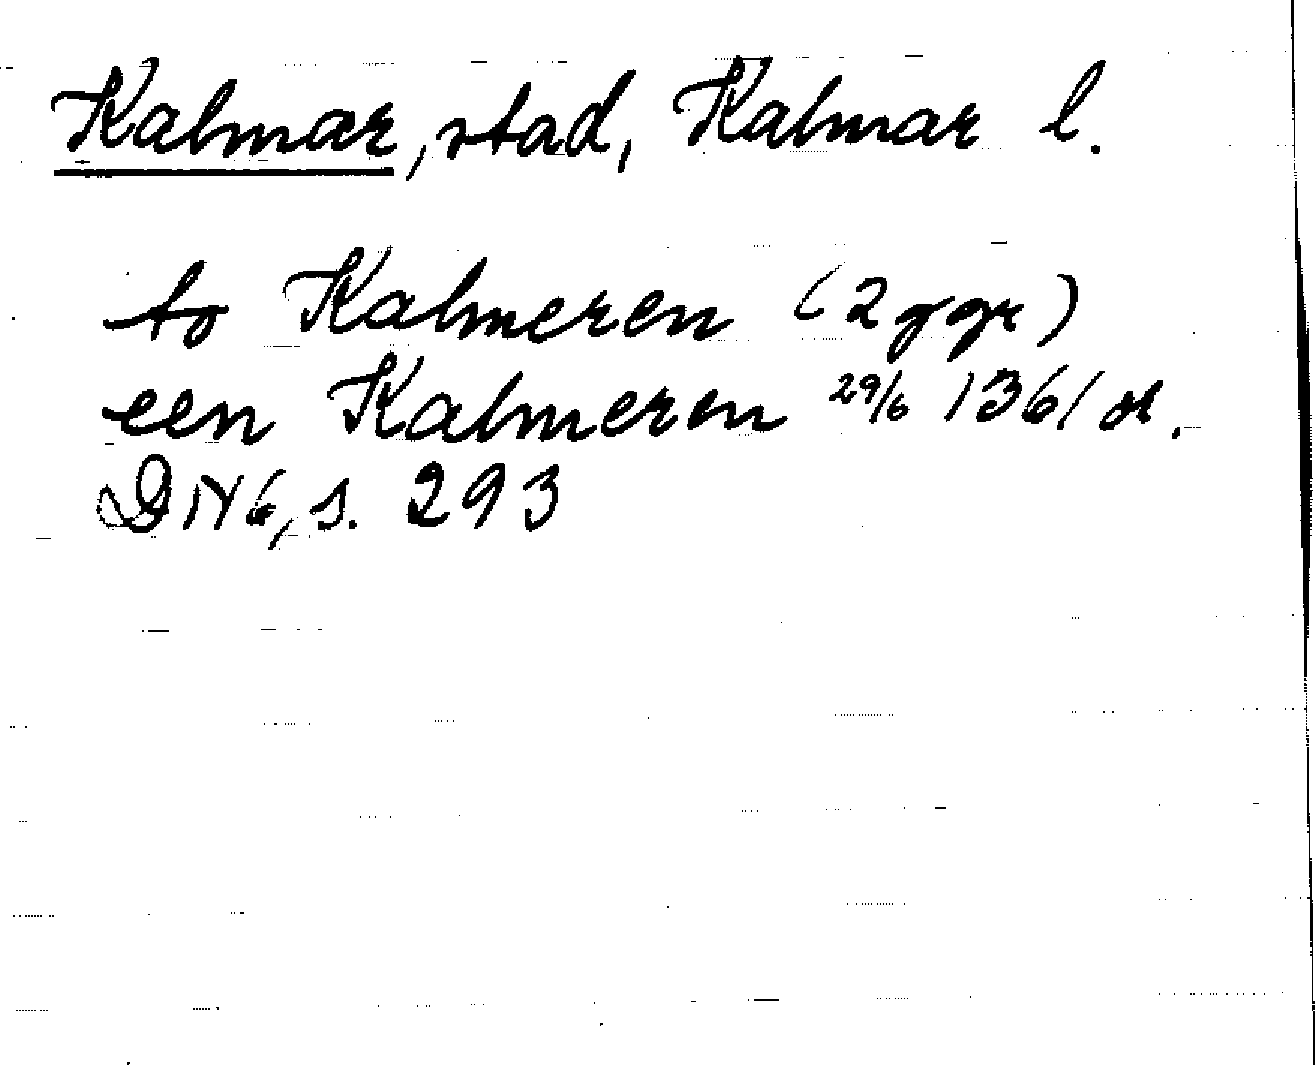 Kalmar, stad, Kalmar l.
to Kalmeren (2 ggr)
een Kalmeren 29/6 1361 or.
DN 6, s. 293